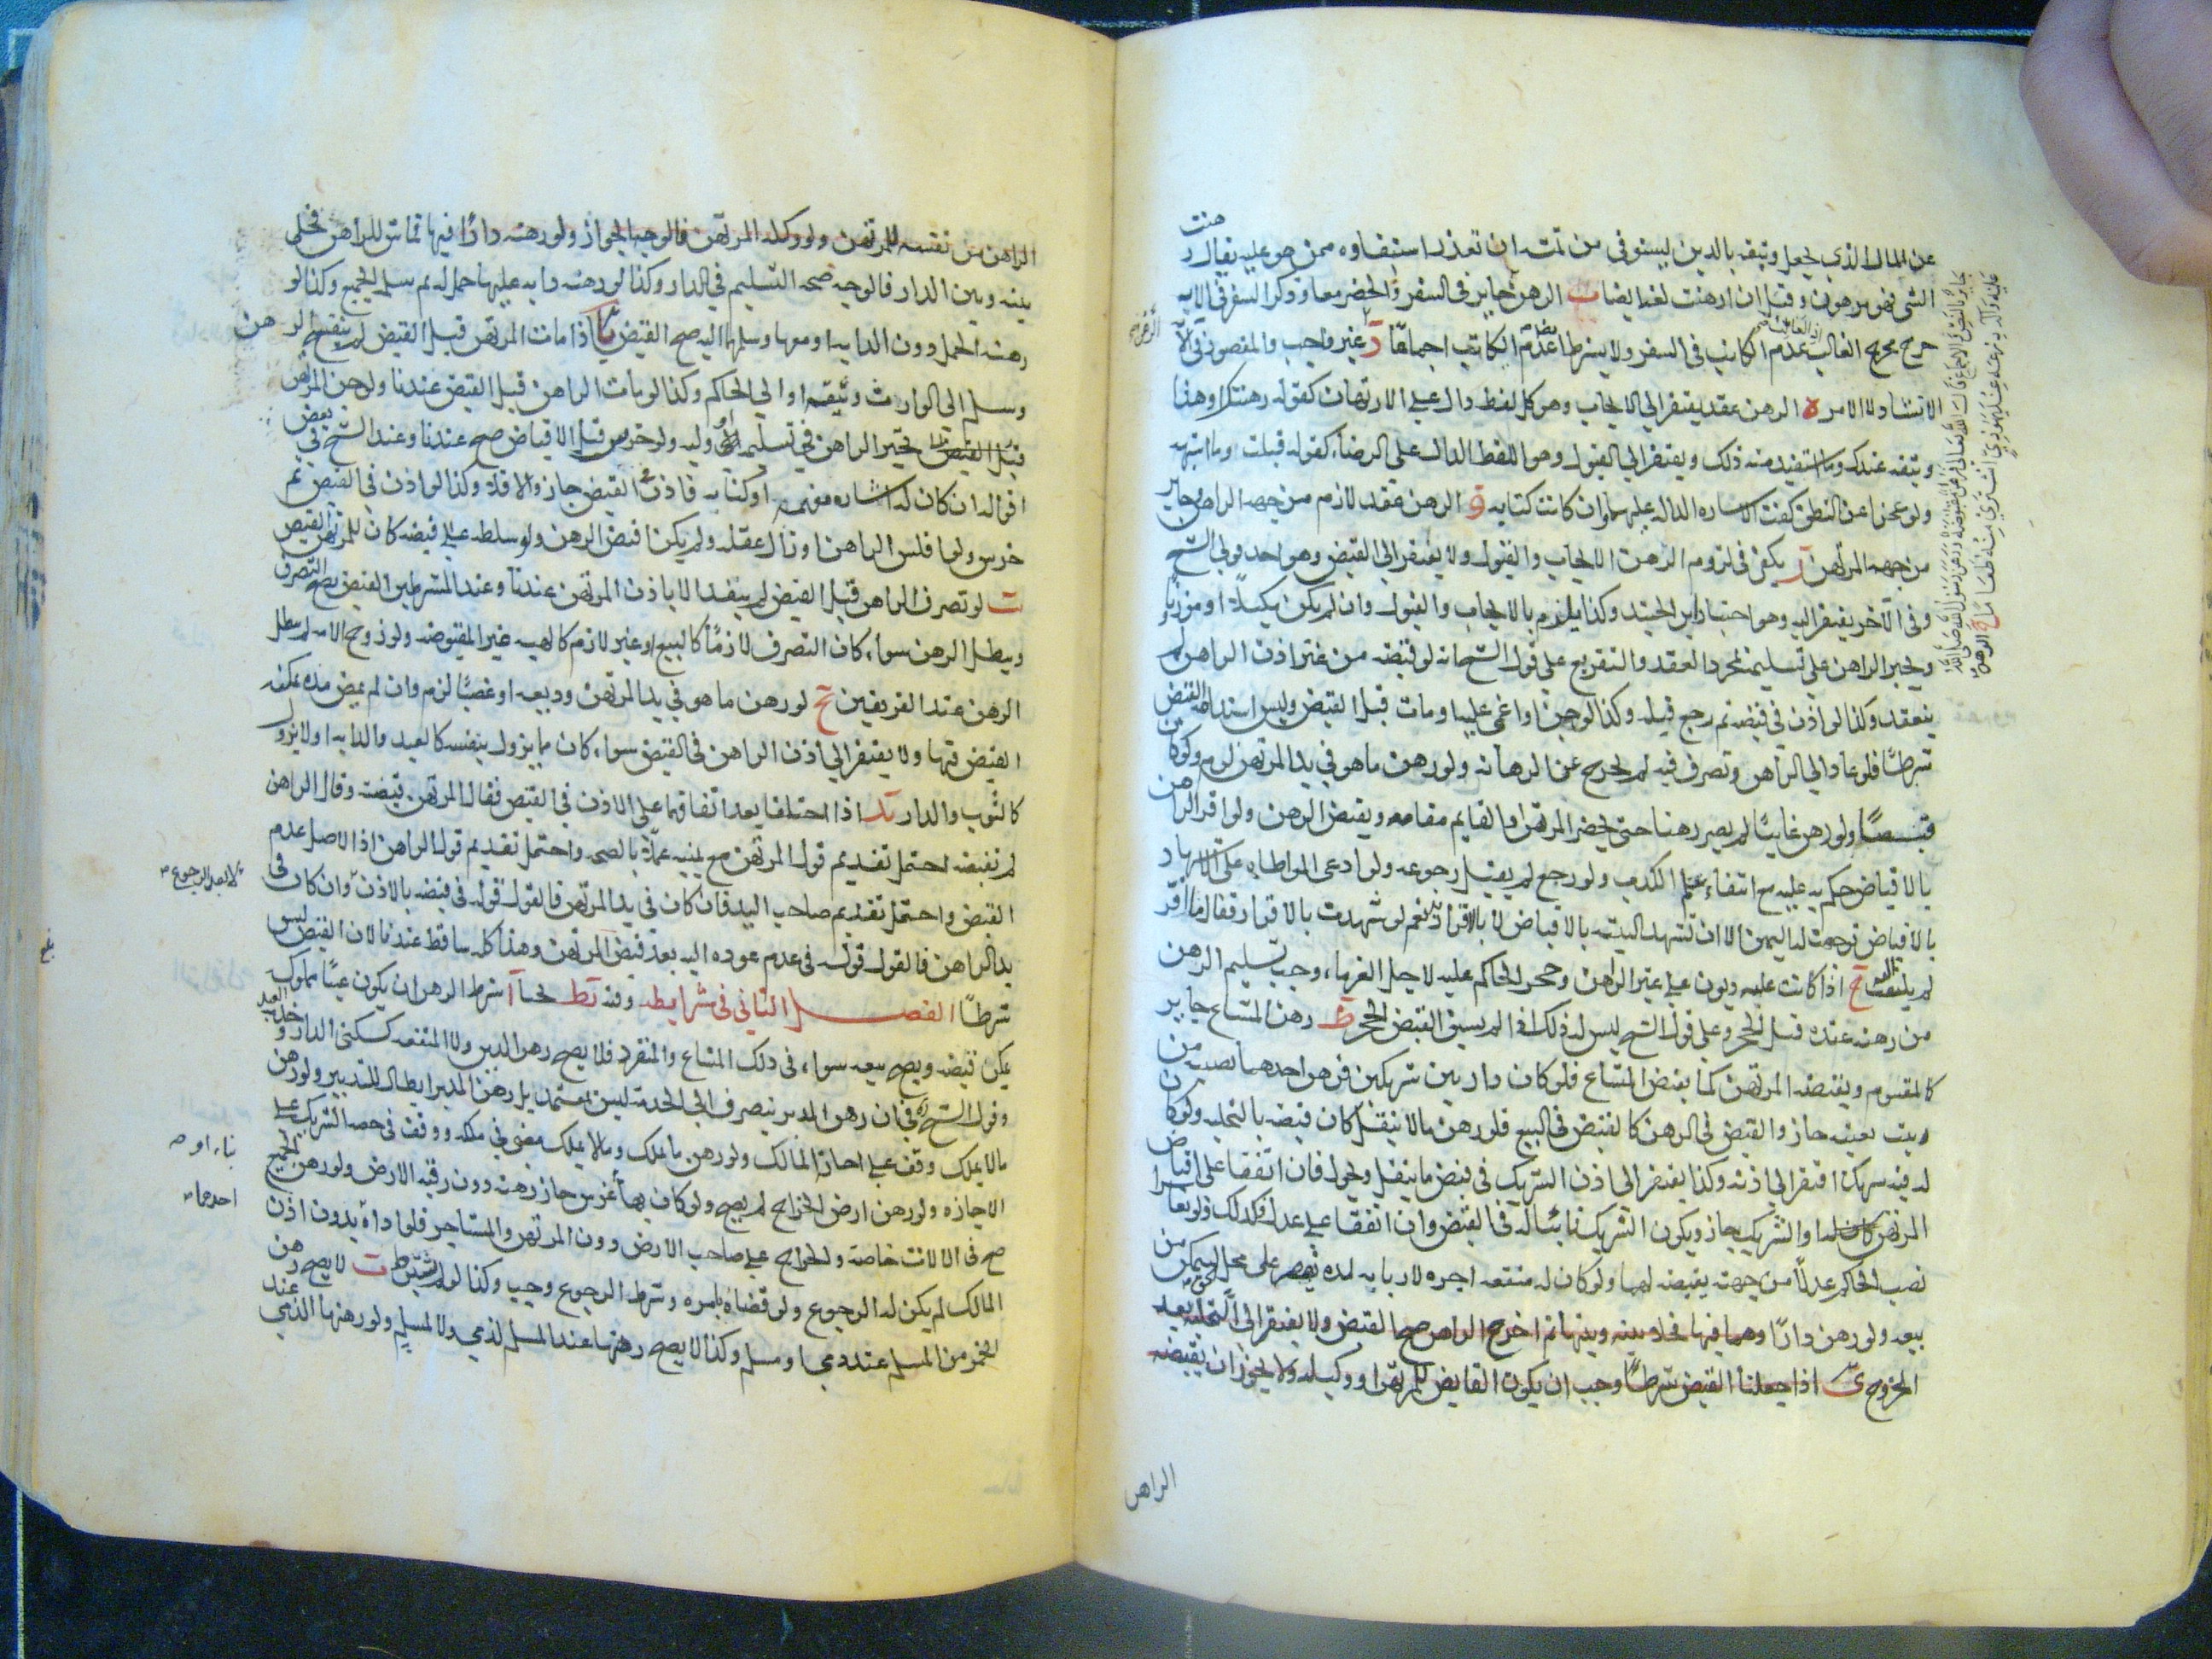 عن المال الذي يجعل وثيقه بالدين ليستوفى من ثمنه ان تعذر استيفاوه ممن هو عليه يقال رهنت
الشى فهو مرهون وقيل ان ارهنت لغه ايضا ب الرهن جايز فى السفر والحضر معا وذكر السفر فى الايه
خرج مخرج الغالب عدم الكاتب فى السفر ولا يشترط عدم الكاتب اجماعًا غير واجب والمقصود فى
الارشاد لا الامر ه الرهن عقد يفتقر الى الايجاب وهو كل لفظ دال على الارتهان كقوله رهنتك او هذا
وثيقه عندك وما استفيد منه ذلك ويفتقر الى القبول وهو اللفظ الدال على الرضا كقوله قبلت وما اشبهه
ولو عجزا عن النطق كفت الاشاره الداله عليهما وان كانت كتابه و الرهن عقد لازم من جهه الراهن جايز
من جهه المرتهن ز يكفى فى لزوم الرهن الايجاب والقبول ولا يفتقر الى القبض وهو احد قولى الشيخ
وفى الآخر يفتقر اليه وهو اختيار ابن الجنيد وكذا يلزم بالايجاب والقبول وان لم يكن مكيلا او موزونا
ويجبر الراهن على تسليمه لمجرد العقد والتفريع على قول الشيخ انه لو قبضه من غير اذن الراهن لم
ينعقد وكذا لو اذن فى قبضه ثم رجع قبله وكذا لو جن او اغمى عليه او مات قبل القبض وليس استدامه القبض
شرطًا فلو عاد الى الراهن وتصرف فيه لم يخرج عن الرهانه ولو رهن ما هو فى يد المرتهن لزم ولو كان
غصبًا ولو رهن غايبًا لم يصر رهنا حتى يحضر المرتهن او القايم مقامه ويقبض الرهن ولو اقر الراهن
بالاقباض حكم به عليه مع انتفاء علم الكذب ولو رجع لم يقبل رجوعه ولو ادعى المواطاه على الاشهاد
بالاقباض توجهت له اليمين الا ان تشهد البينه بالاقباض لا بالاقرار به نعم لو شهدت بالاقرار فقال ما اقر
لم يلتفت اليه ح اذا كانت عليه ديون على غير الراهن وحجر الحاكم عليه لاجل الغرماء وجب تسليم الرهن
من رهنه عنده قبل الحجر وعلى قول الشيخ ليس له ذلك اذا لم يسبق القبض الحجر ط رهن المشاع جايز
كالمقسوم ويقبضه المرتهن كما يقبض المشاع فلو كان دار بين شريكين فرهن احدهما نصيبه من
بيت بعينه جاز والقبض فى الرهن كالقبض فى البيع فلو رهن مالا ينقل كان قبضه بالتخليه ولو كان
له فيه شريك افتقر الى اذنه وكذا يفتقر الى اذن الشريك فى قبض ما ينقل ويحول فان اتفقا على اقباض
المرتهن كان له او الشريك جاز ويكون الشريك نايبًا له فى القبض وان اتفقا على عدل فكذلك ولو تعاسرا
نصب الحاكم عدلًا من جهته يقبضه لهما ولو كان له منفعه اجره لاربابه لمده تقصر على محل ليتمكن من
بيعه ولو رهن دارًا وهما فيها فخلا بينه وبينها ثم اخرج الراهن صح القبض ولا يفتقر الى التخليه بعد
الخروج ى اذا جعلنا القبض شرطًا وجب ان يكون القابض للمرتهن او وكيله ولا يجوز ان يقبضه
الراهن
الراهن من نفسه للمرتهن ولو وكله المرتهن فالوجه الجواز ولو رهنه دارًا فيها قماش للراهن فخلى
بينه وبين الدار فالوجه صحه التسليم فى الدار وكذا لو رهنه دابه عليها حمل له ثم سلم الجميع وكذا لو
رهنه الحمل دون الدابه او معها وسلمها اليه صح القبض يا اذا مات المرتهن قبل القبض لم ينفسخ الرهن
وسلم الى الوارث وثيقه او الى الحاكم وكذا لو مات الراهن قبل القبض عندنا ولو جن المرتهن
قبل القبض تخير الراهن فى تسليمه الى وليه ولو خرس قبل الاقباض صح عندنا وعند الشيخ فى بعض
اقواله ان كان له اشاره مفهمه او كتابه فاذن القبض جاز والا فلا وكذا لو اذن فى القبض ثم
خرس ولو افلس الراهن او زال عقله ولم يكن اقبض الرهن ولو سلطه على قبضه كان للمرتهن القبض
يب لو تصرف الراهن قبل القبض لم ينفد الا باذن المرتهن عندنا وعند المشرطين القبض يصح التصرف
ويبطل الرهن سواء كان التصرف لازمًا كالبيع او غير لازم كالهبه غير المقبوضه ولو زوج الامه لم يبطل
الرهن عند الفريقين يج لو رهن ما هو فى يد المرتهن وديعه او غصبًا لزم وان لم يمض مده يمكنه
القبض فيها ولا يفتقر الى اذن الراهن فى القبض سواء كان مما يزول بنفسه كالعبد والدابه او لا يزول
كالثوب والدار يد اذا اختلفا بعد اتفاقهما على الاذن فى القبض فقال المرتهن قبضته وقال الراهن
لم تقبضه احتمل تقديم قول المرتهن مع يمينه عملًا بالصحه واحتمل تقديم قول الراهن اذ الاصل عدم
القبض واحتمل تقديم صاحب اليد فان كان فى يد المرتهن فالقول قوله فى قبضه بالاذن وان كان فى
لا بعد الرجوع
يد الراهن فالقول قوله فى عدم عوده اليه بعد قبض المرتهن وهذا كله ساقط عندنا لان القبض ليس
شرطًا الفصل الثاني في شرايطه وفيه يط بحثا ا شرط الرهن ان يكون عينًا مملوك
يمكن قبضه ويصح بيعه سواء فى ذلك المشاع والمنفرد فلا يصح رهن الدين ولا المنفعه كسكنى الدار وخدمه العبد
وقول الشيخ ره فى ان رهن المدبر ينصرف الى الخدمة ليس بمعتمد بل رهن المدبر ابطال للتدبير ولو رهن
مالا يملك وقف على اجازه المالك ولو رهن ما يملك ومالا يملك مضى فى ملكه ووقف فى حصه الشريك على
الاجازه ولو رهن ارض الخراج لم يصح ولو كان بها غرس جاز رهنه دون رقبه الارض ولو رهن الجميع
بناء او
صح فى الالات خاصه والخراج على صاحب الارض دون المرتهن والمستاجر فلو اداه بدون اذن
احدهما
المالك لم يكن له الرجوع ولو قضاه بامره وشرط الرجوع وجب وكذا لو لم يشترط ب لا يصح رهن
الخمر من المسلم عند ذمى او مسلم وكذا لا يصح رهنها عند المسلم لذمى ولا لمسلم ولو رهنها الذمى عند